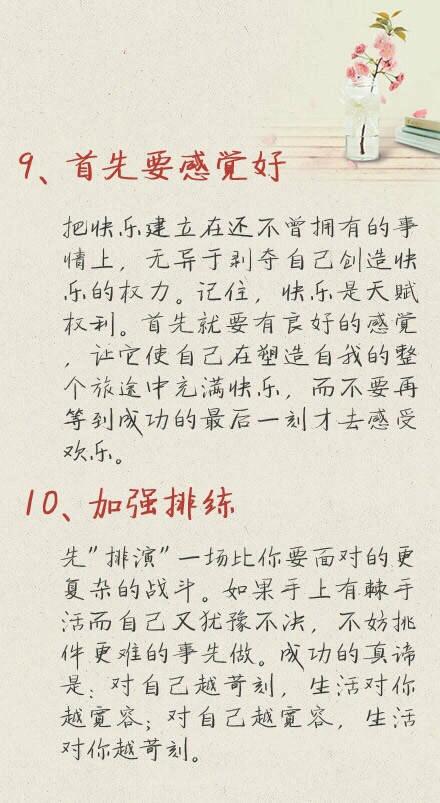 9、首先要感觉好
把快乐建立在还不曾拥有的事
情上，无异于剥夺自己创造快
乐的权力。记住，快乐是天赋
权利。首先就要有良好的感觉
，让它使自己在塑造自我的整
个旅途中充满快乐，而不要再
等到成功的最后一刻才去感受
欢乐。
10、加强排练
先”排演”一场比你要面对的更
复杂的战斗。如果手上有棘手
活而自己又犹豫不决，不妨挑
件更难的事先做。成功的真谛
是：对自己越苛刻，生活对你
越宽容；对自己越宽容，生活
对你越苛刻。